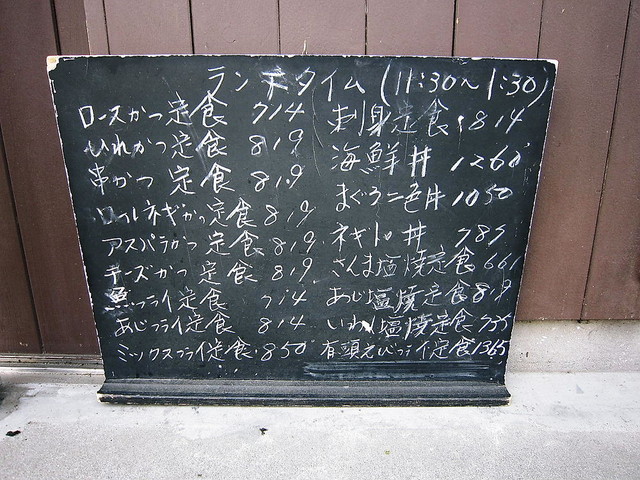 ランチタイム (11:30〜1:30)
ロースかつ定食 714
ひれかつ定食 819
串かつ定食 819
ロールネギかつ定食 819
アスパラかつ定食 819
チーズかつ定食 819
魚フライ定食 714
あじフライ定食 814
ミックスフライ定食 850
刺身定食 814
海鮮丼 1260
まぐろ二色丼 1050
ネギトロ丼 787
さんま塩焼定食 661
あじ塩焼定食 819
いわし塩焼定食 735
有頭えびフライ定食 1365